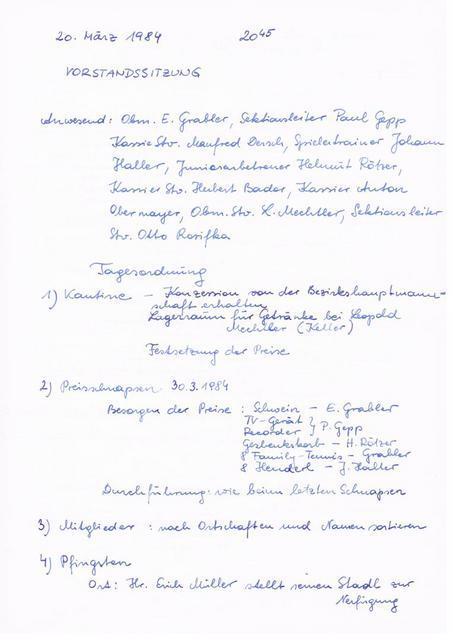 20. März 1984 20⁴⁵
VORSTANDSSITZUNG
Anwesend: Obm. E. Grabler, Sektionsleiter Paul Gepp
Kassier Stv. Manfred Dersch, Spielertrainer Johann
Haller, Juniorenbetreuer Helmut Rötzer,
Kassier Stv. Herbert Bader, Kassier Anton
Obermayer, Obm. Stv. L. Mechtler, Sektionsleiter
Stv. Otto Rosifka
Tagesordnung
1) Kantine – Konzession von der Bezirkshauptmann-
schaft erhalten
Lagerraum für Getränke bei Leopold
Mechtler (Keller)
Festsetzung der Preise
2) Preisschnapsen 30.3.1984
Besorgen der Preise : Schwein – E. Grabler
TV-Gerät }
Recorder } P. Gepp
Geschenkskorb – H. Rötzer
8 Family-Tennis – Grabler
8 Henderl – J. Haller
Durchführung: wie beim letzten Schnapsen
3) Mitglieder : nach Ortschaften und Namen sortieren
4) Pfingsten
Ort: Hr. Erich Müller stellt seinen Stadl zur
Verfügung